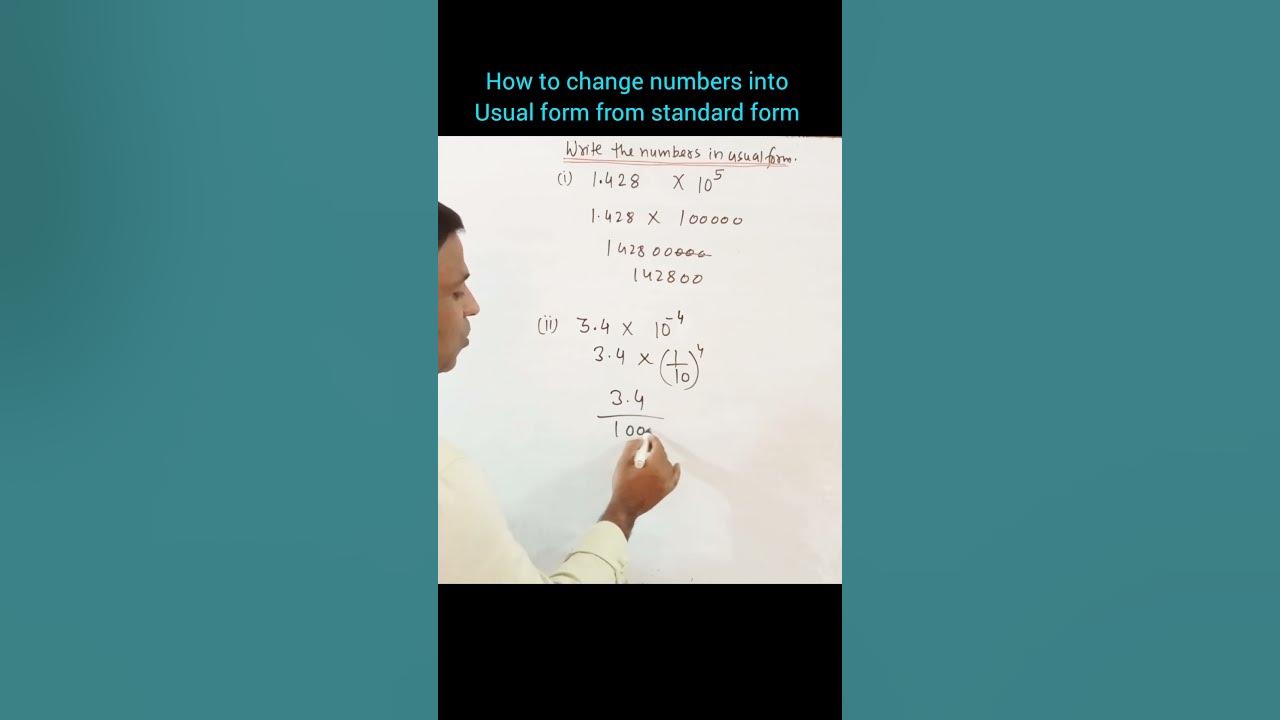 How to change numbers into
Usual form from standard form
Write the numbers in usual form.
(i) 1.428 × 10⁵
1.428 × 100000
14280000000
142800
(ii) 3.4 × 10⁻⁴
3.4 × (1/10)⁴
3.4
100